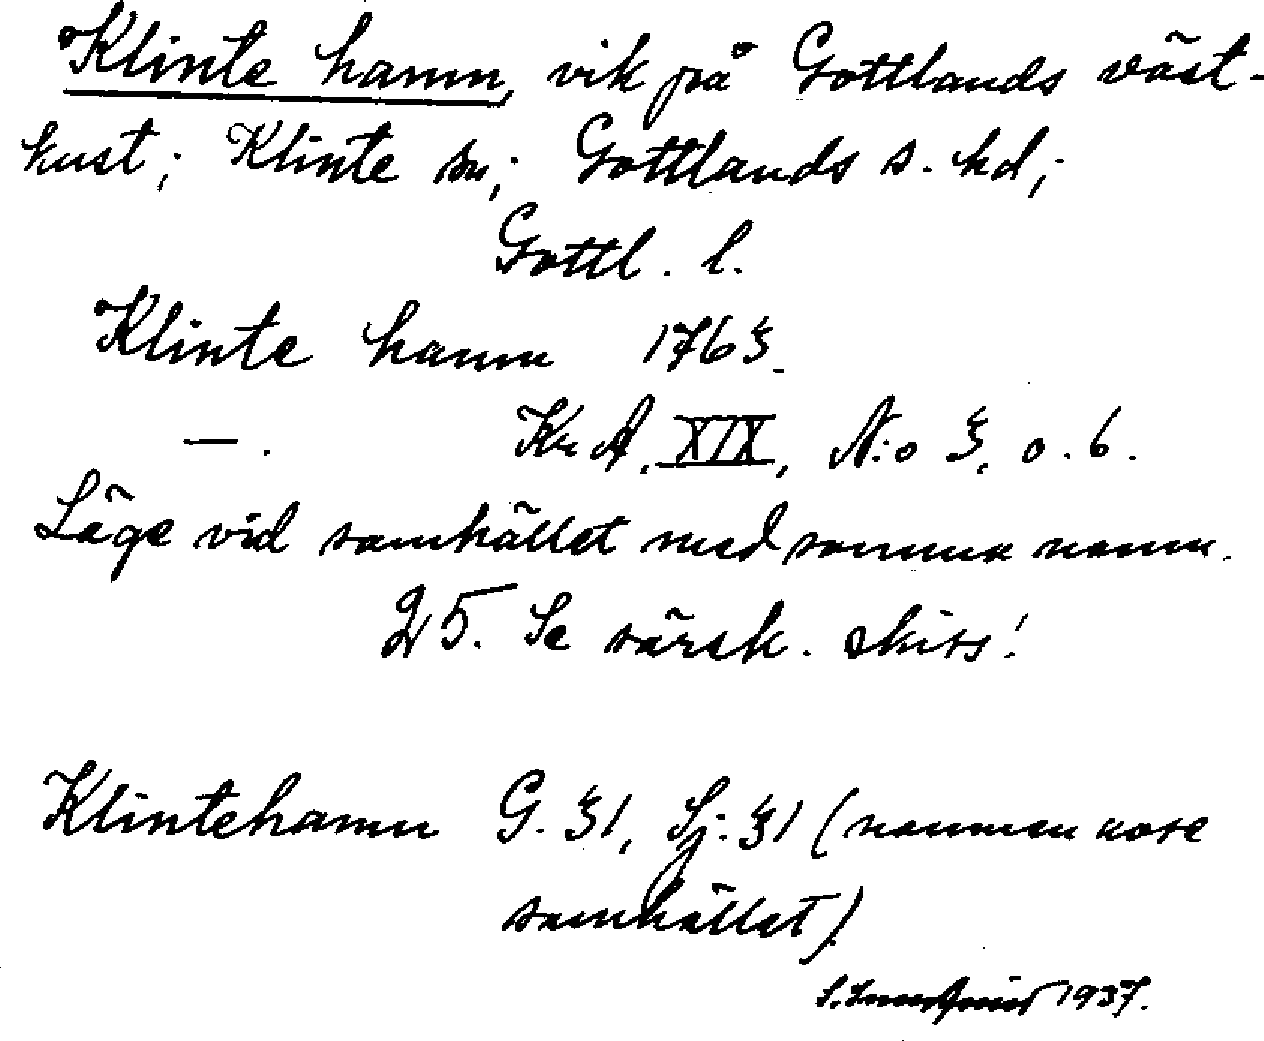 Klinte hamn, vik på Gottlands väst-
kust; Klinte sn; Gottlands s. hd;
Gottl. l.
Klinte hamn 1763.
—. Kr. A. XIX, N:o 3, o. 6.
Läge vid samhället med samma namn.
25. Se särsk. skiss!
Klintehamn G. 31, Sj. 31 (namnen avse
samhället)
1937.